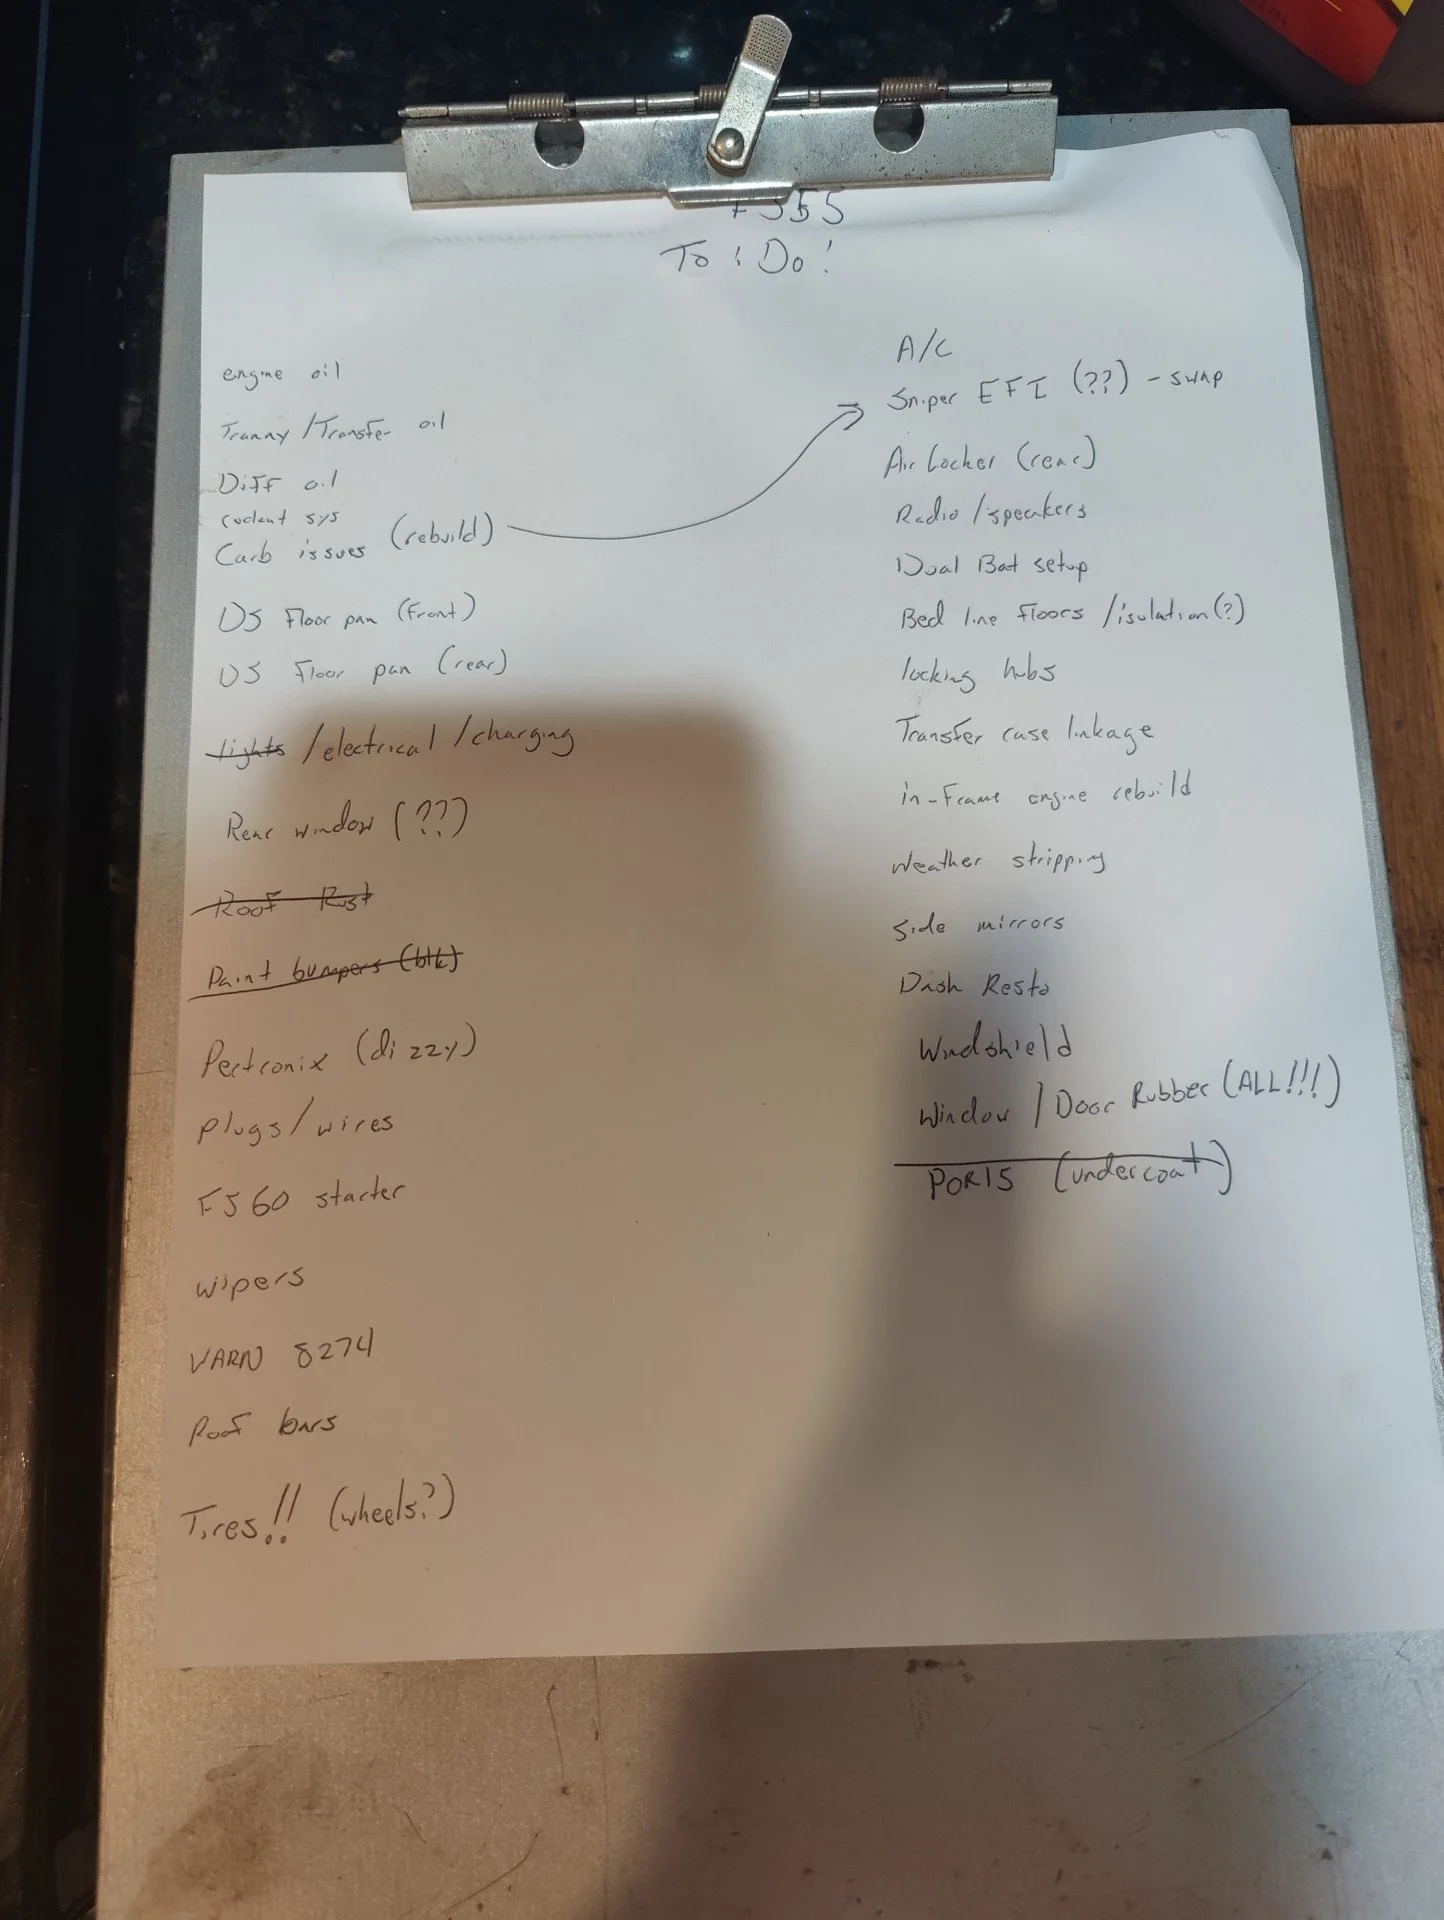 FJ55
To Do!
engine oil
Tranny/Transfer oil
Diff oil
coolant sys
Carb issues (rebuild)
DS Floor pan (front)
DS Floor pan (rear)
lights /electrical /charging
Rear window (??)
Roof Rust
Paint bumpers (blk)
Pertronix (dizzy)
plugs/wires
FJ60 starter
wipers
WARN 8274
Roof bars
Tires!! (wheels?)
A/C
Sniper EFI (??) - swap
Air Locker (rear)
Radio/speakers
Dual Bat setup
Bed line floors /isolation(?)
locking hubs
Transfer case linkage
in-frame engine rebuild
Weather stripping
side mirrors
Dash Resto
Windshield
Window / Door Rubber (ALL!!!)
POR15 (undercoat)